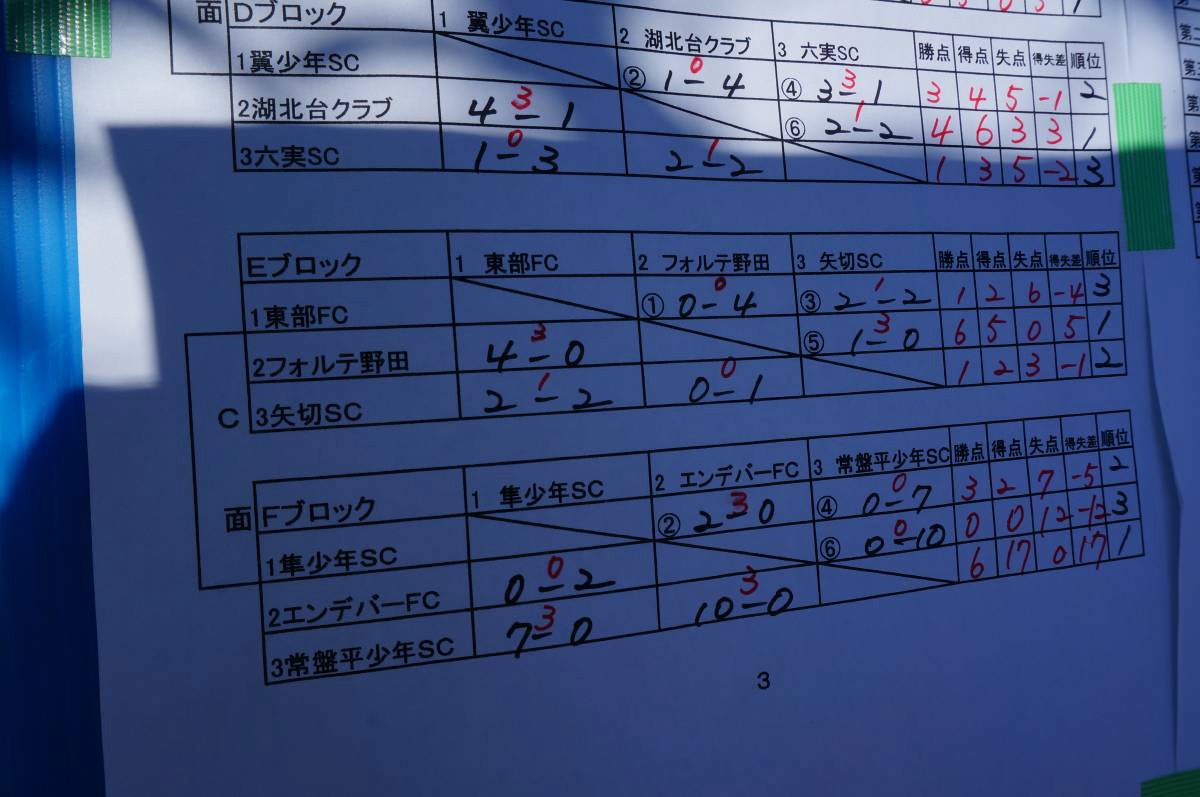 面 Dブロック 1 翼少年SC 2 湖北台クラブ 3 六実SC 勝点 得点 失点 得失差 順位
1翼少年SC ② 0 1-4 ④ 3 3-1 3 4 5 -1 2
2湖北台クラブ 3 4-1 ⑥ 1 2-2 4 6 3 3 1
3六実SC 0 1-3 1 2-2 1 3 5 -2 3
Eブロック 1 東部FC 2 フォルテ野田 3 矢切SC 勝点 得点 失点 得失差 順位
1東部FC ① 0 0-4 ③ 1 2-2 1 2 6 -4 3
2フォルテ野田 3 4-0 ⑤ 3 1-0 6 5 0 5 1
C 3矢切SC 1 2-2 0 0-1 1 2 3 -1 2
面 Fブロック 1 隼少年SC 2 エンデバーFC 3 常盤平少年SC 勝点 得点 失点 得失差 順位
1隼少年SC ② 3 2-0 ④ 0 0-7 3 2 7 -5 2
2エンデバーFC 0 0-2 ⑥ 0 0-10 0 0 12 -12 3
3常盤平少年SC 3 7-0 3 10-0 6 17 0 17 1
3